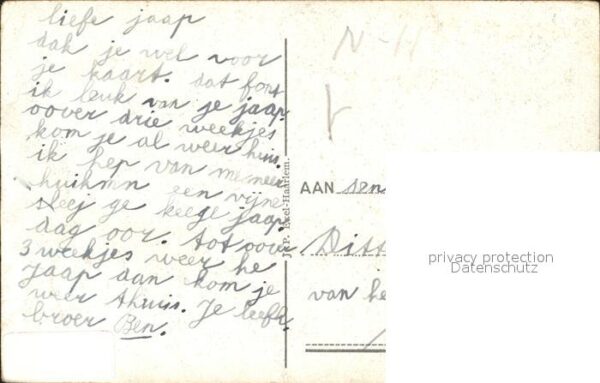 liefe jaap
dak je wel voor
je kaart. dat font
ik leuk van je jaap
oover drie weekjes
kom je al weer huis.
ik hep van me meer
huihmn een vijne
sleej ge keege jaap.
dag oor. tot oover
3 weekjes weer he
Jaap dan kom je
weer thuis. Je liefh.
broer Ben.
N-H
J.P. Exel-Haarlem.
AAN
van he
privacy protection
Datenschutz